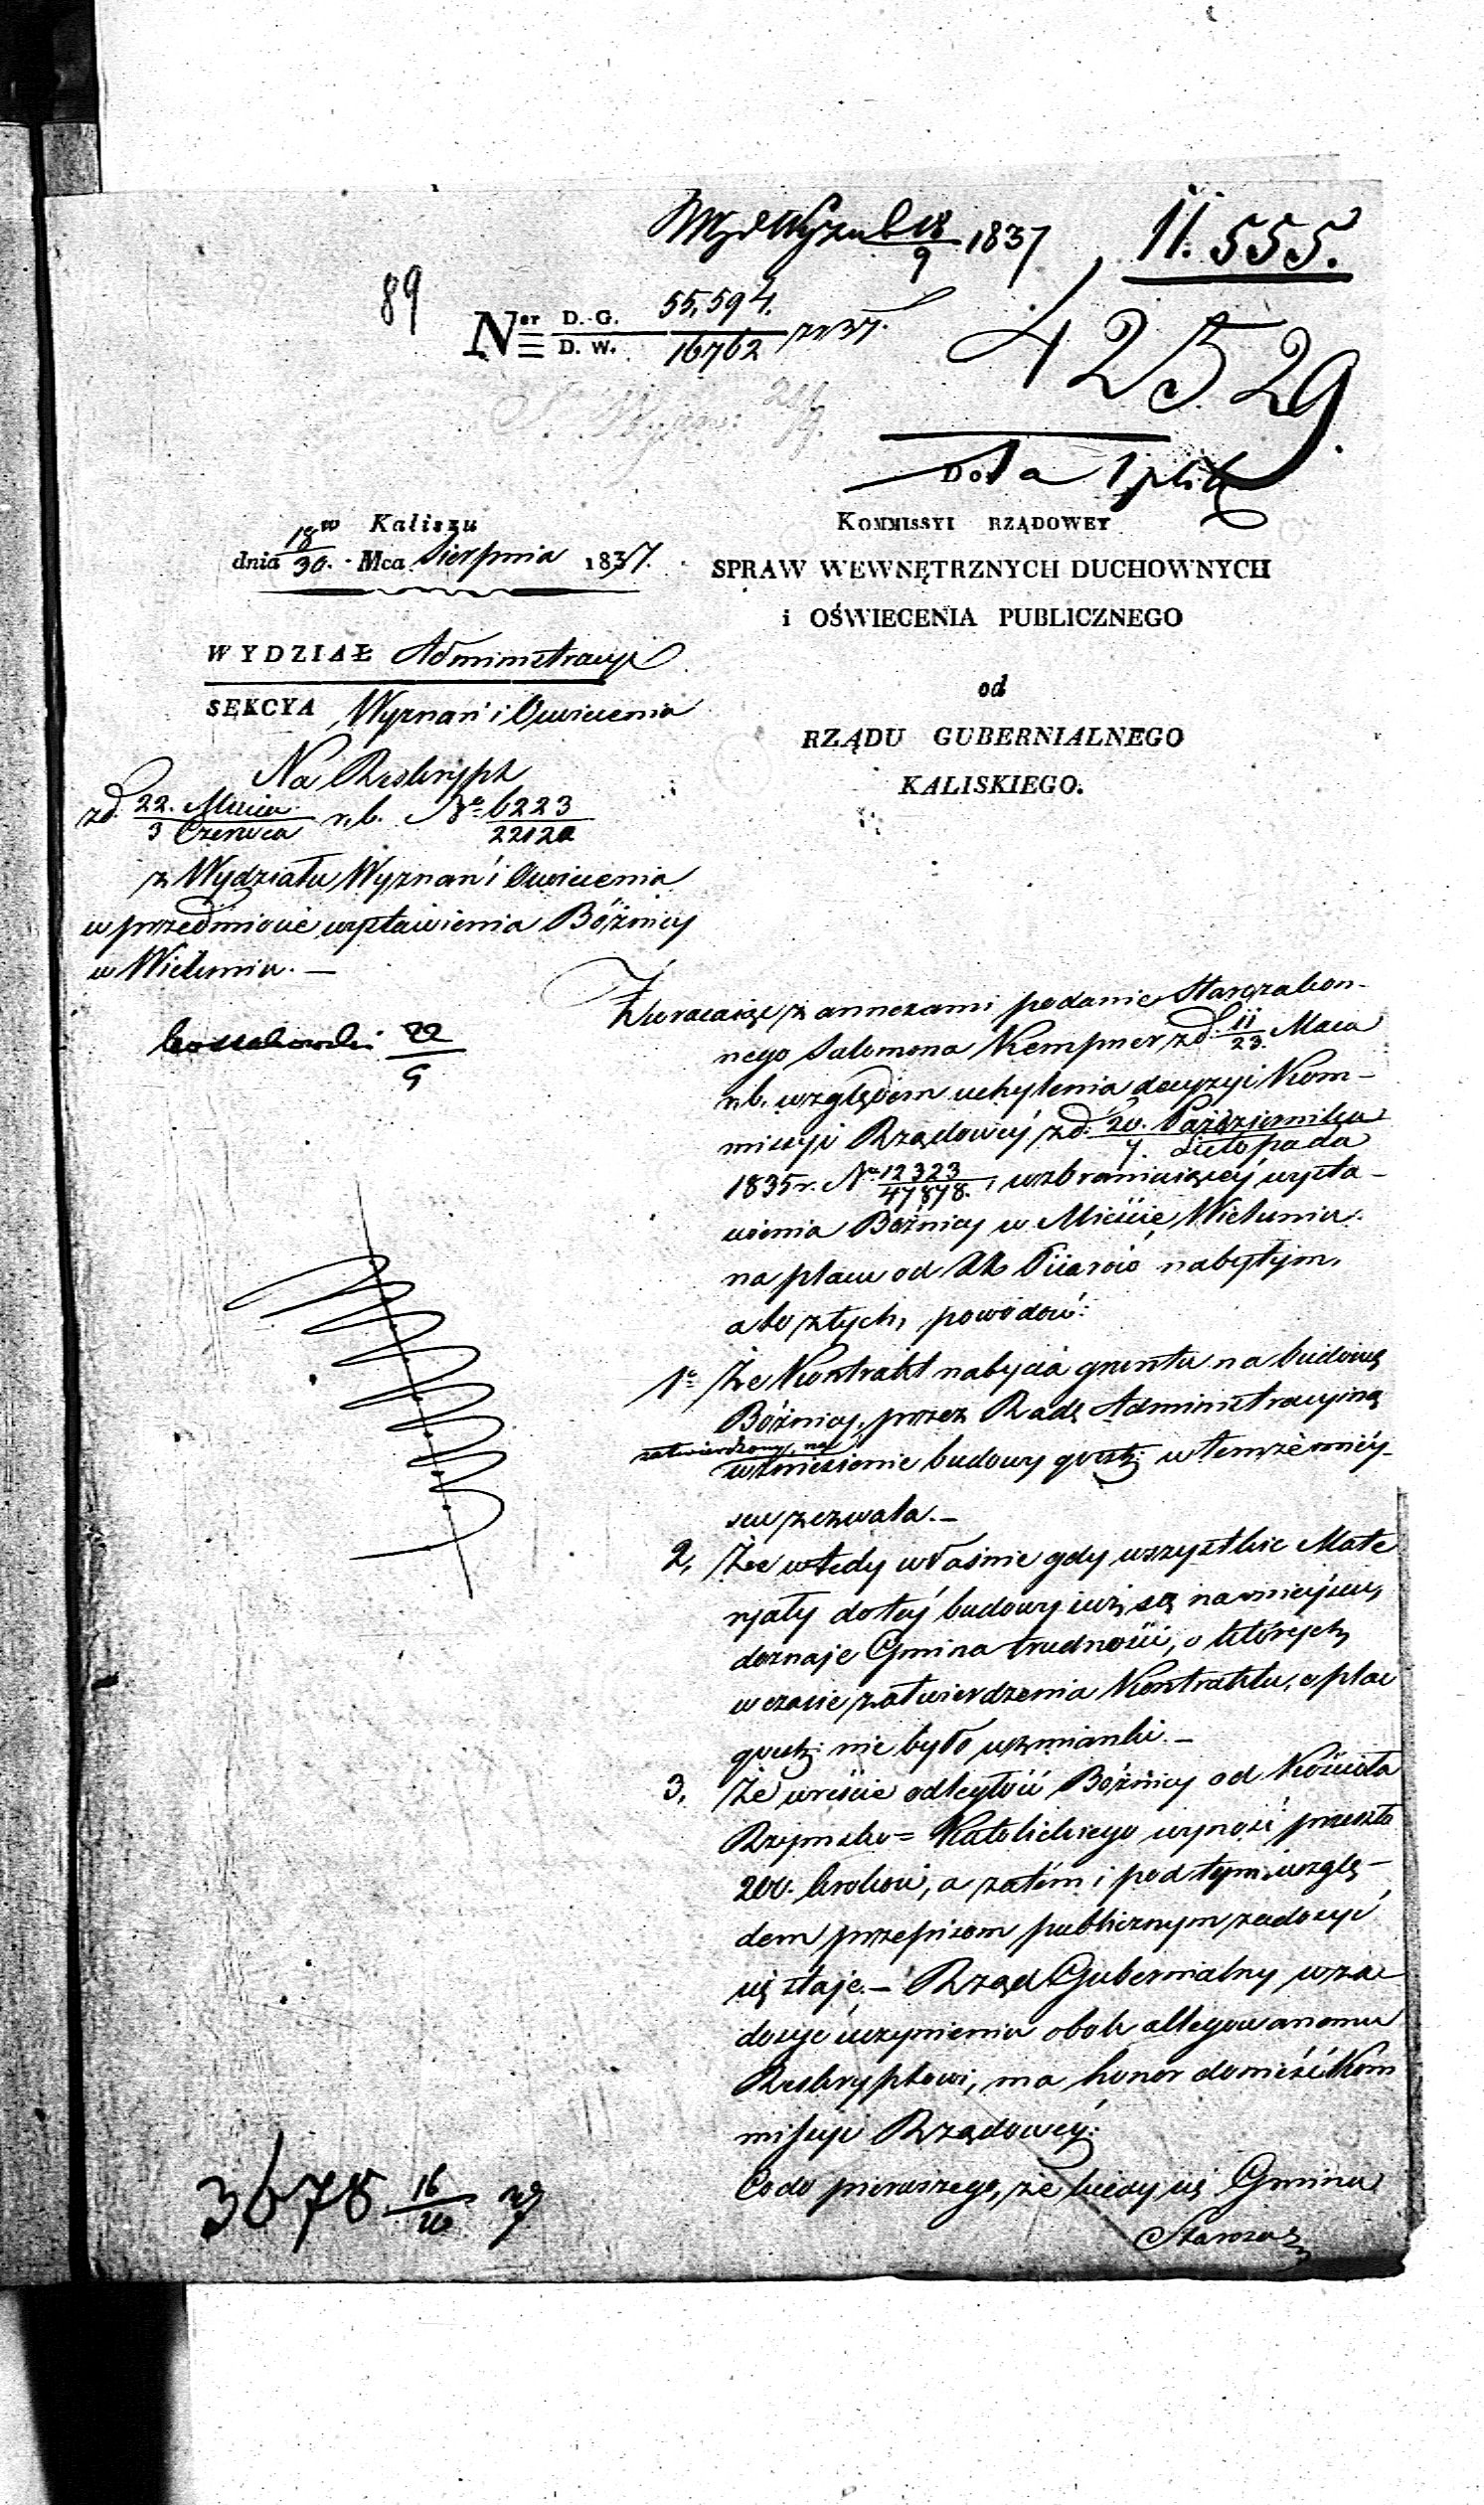 18/9 1837
11.555.
89
Ner D.G./D.W. 55,594./16762 zr 37.
42529
Do
w Kaliszu
dnia 18/30. Mca Sierpnia 1837.
KOMMISSYI RZĄDOWEY
SPRAW WEWNĘTRZNYCH DUCHOWNYCH
i OŚWIECENIA PUBLICZNEGO
od
RZĄDU GUBERNIALNEGO
KALISKIEGO.
WYDZIAŁ Administracyi
SEKCYA Wyznań i Oświecenia
Na Reskrypt
zd. 22. Maia/3 Czerwca r.b. No 6223/22120
z Wydziału Wyznań i Oświecenia
w przedmiocie wystawienia Bóżnicy
w Wieluniu. —
22/9
Zwracaiąc z annexami podanie Starozakon-
nego Salomona Kempner zd. 11/23. Maca
r.b. względem uchylenia decyzyi Kom-
missyi Rządowéy zd. 20. Października/1. Listopada
1835 r. No 12323/47878., wzbraniaiącéy wysta-
wienia Bóżnicy w Mieście Wieluniu
na placu od XX Piiarów nabytym,
a to z tych, powodów:
1o Że Kontrakt nabycia gruntu na budowę
Bóżnicy, przez Radę Administracyiną
zatwierdzony, na
wzniesienie budowy qvest: w temże miéy-
scu zezwala. —
2, Że wtedy właśnie gdy wszystkie Mate
ryały do téy budowy iuż są na mieyscu,
doznaje Gmina trudności, o których
w czasie zatwierdzenia Kontraktu, o plac
qvest: nie było wzmianki. —
3, Że wreście odległość Bóżnicy od Kościoła
Rzymsko = Katolickiego wynosi przeszło
200. kroków, a zatém i pod tym wzglę-
dem przepisom publicznym zadosyć
się staje. — Rząd Gubernialny w za
dosyć uczynieniu obok allegowanemu
Reskryptowi, ma honor donieść Kom
missyi Rządowéy:
Co do pierwszego, że kiedy się Gmina
Staroza
3678 16/10